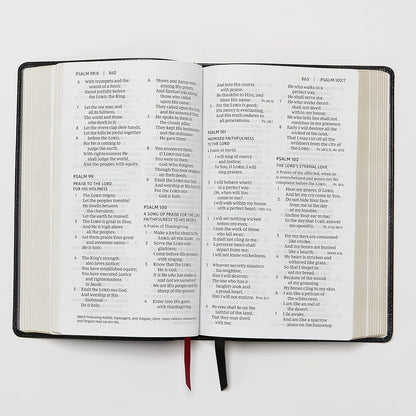 PSALM 98:6 | 862
6 With trumpets and the
sound of a horn;
Shout joyfully before
the LORD, the King.
7 Let the sea roar, and
all its fullness,
The world and those
who dwell in it;
8 Let the rivers clap their hands;
Let the hills be joyful together
before the LORD,
9 For He is coming to
judge the earth.
With righteousness He
shall judge the world,
And the peoples with equity.
PSALM 99
PRAISE TO THE LORD
FOR HIS HOLINESS
1 The LORD reigns;
Let the peoples tremble!
He dwells between
the cherubim;
Let the earth be moved!
2 The LORD is great in Zion,
And He is high above
all the peoples.
3 Let them praise Your great
and awesome name—
He is holy.
4 The King's strength
also loves justice;
You have established equity;
You have executed justice
and righteousness
in Jacob.
5 Exalt the LORD our God,
And worship at His
footstool—
He is holy.
6 Moses and Aaron were
among His priests,
And Samuel was among
those who called
upon His name;
They called upon the LORD,
and He answered them.
7 He spoke to them in
the cloudy pillar;
They kept His testimonies
and the ordinance
He gave them.
8 You answered them,
O LORD our God;
You were to them
God-Who-Forgives,
Though You took vengeance
on their deeds.
9 Exalt the LORD our God,
And worship at His holy hill;
For the LORD our
God is holy.
PSALM 100
A SONG OF PRAISE FOR THE LORD'S
FAITHFULNESS TO HIS PEOPLE
A Psalm of Thanksgiving.
1 Make a joyful shout to the
LORD, all you lands!
2 Serve the LORD with
gladness;
Come before His presence
with singing.
3 Know that the LORD,
He is God;
It is He who has made us,
and not we ourselves;
We are His people and the
sheep of His pasture.
4 Enter into His gates with
thanksgiving,
And into His courts
with praise.
Be thankful to Him, and
bless His name.
5 For the LORD is good;
His mercy is everlasting,
And His truth endures to
all generations.
PSALM 101
PROMISED FAITHFULNESS
TO THE LORD
A Psalm of David.
1 I will sing of mercy
and justice;
To You, O LORD, I will
sing praises.
2 I will behave wisely
in a perfect way.
Oh, when will You
come to me?
I will walk within my house
with a perfect heart.
3 I will set nothing wicked
before my eyes;
I hate the work of those
who fall away;
It shall not cling to me.
4 A perverse heart shall
depart from me;
I will not know wickedness.
5 Whoever secretly slanders
his neighbor,
Him I will destroy;
The one who has a
haughty look and
a proud heart,
Him I will not endure.
6 My eyes shall be on the
faithful of the land,
That they may dwell
with me;
863 | PSALM 102:7
He who walks in a
perfect way,
He shall serve me.
7 He who works deceit
shall not dwell
within my house;
He who tells lies shall not
continue in my presence.
8 Early I will destroy all the
wicked of the land,
That I may cut off all the
evildoers from the city
of the LORD.
PSALM 102
THE LORD'S ETERNAL LOVE
A Prayer of the afflicted, when he
is overwhelmed and pours out his
complaint before the LORD.
1 Hear my prayer, O LORD,
And let my cry come to You.
2 Do not hide Your face
from me in the day
of my trouble;
Incline Your ear to me;
In the day that I call, answer
me speedily.
3 For my days are consumed
like smoke,
And my bones are burned
like a hearth.
4 My heart is stricken and
withered like grass,
So that I forget to
eat my bread.
5 Because of the sound
of my groaning
My bones cling to my skin.
6 I am like a pelican of
the wilderness;
I am like an owl of
the desert.
7 I lie awake,
And am like a sparrow
alone on the housetop.